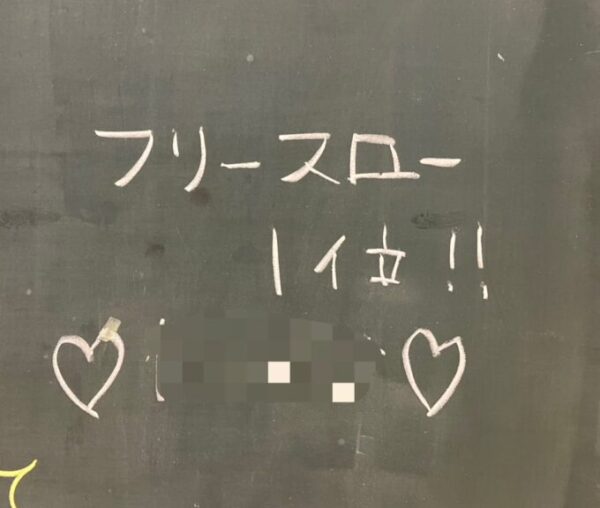 フリースロー
1位!!
♡ ♡